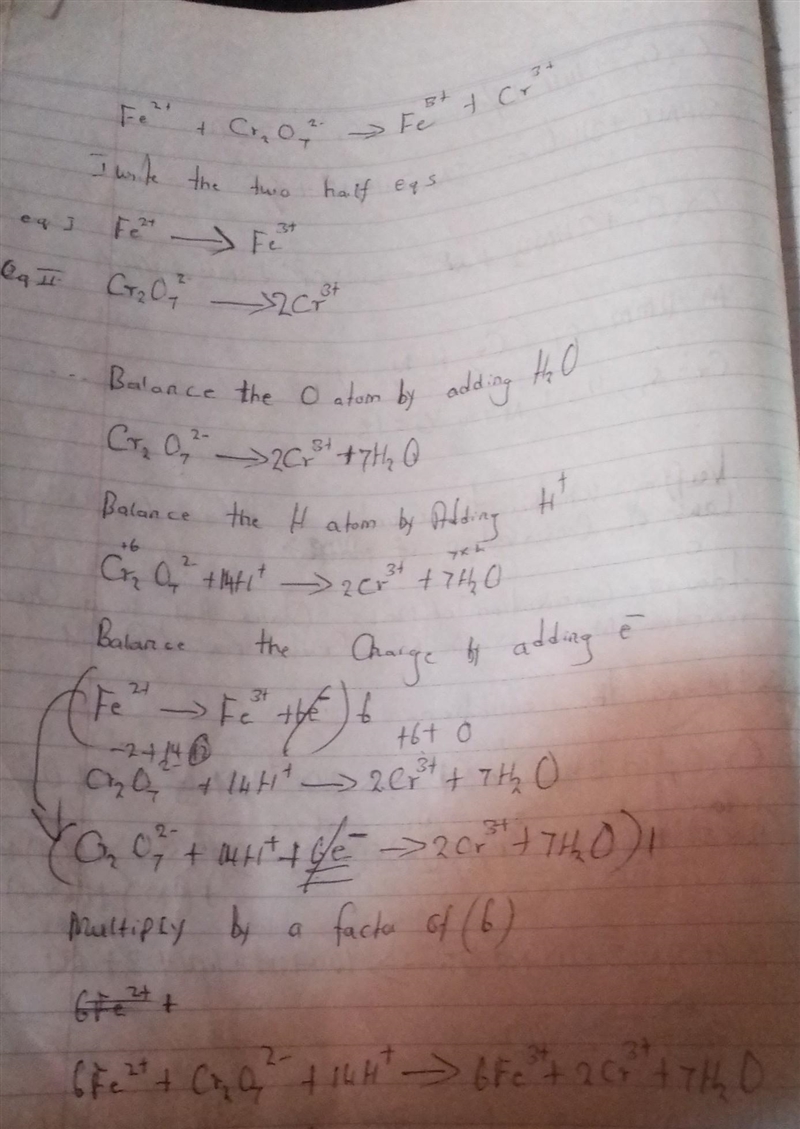 Fe²⁺ + Cr₂O₇²⁻ → Fe³⁺ + Cr³⁺
I write the two half eqs
eq I Fe²⁺ → Fe³⁺
Eq II Cr₂O₇²⁻ → 2Cr³⁺
Balance the O atom by adding H₂O
Cr₂O₇²⁻ → 2Cr³⁺ + 7H₂O
Balance the H atom by Adding H⁺
+6
Cr₂O₇²⁻ + 14H⁺ → 2Cr³⁺ + 7H₂O
Balance the Charge by adding e⁻
(Fe²⁺ → Fe³⁺ + e⁻) 6
-2+14 12 +6+ 0
Cr₂O₇²⁻ + 14H⁺ → 2Cr³⁺ + 7H₂O
(Cr₂O₇²⁻ + 14H⁺ + 6e⁻ → 2Cr³⁺ + 7H₂O) 1
Multiply by a facta of (6)
6Fe²⁺ +
6Fe²⁺ + Cr₂O₇²⁻ + 14H⁺ → 6Fe³⁺ + 2Cr³⁺ + 7H₂O